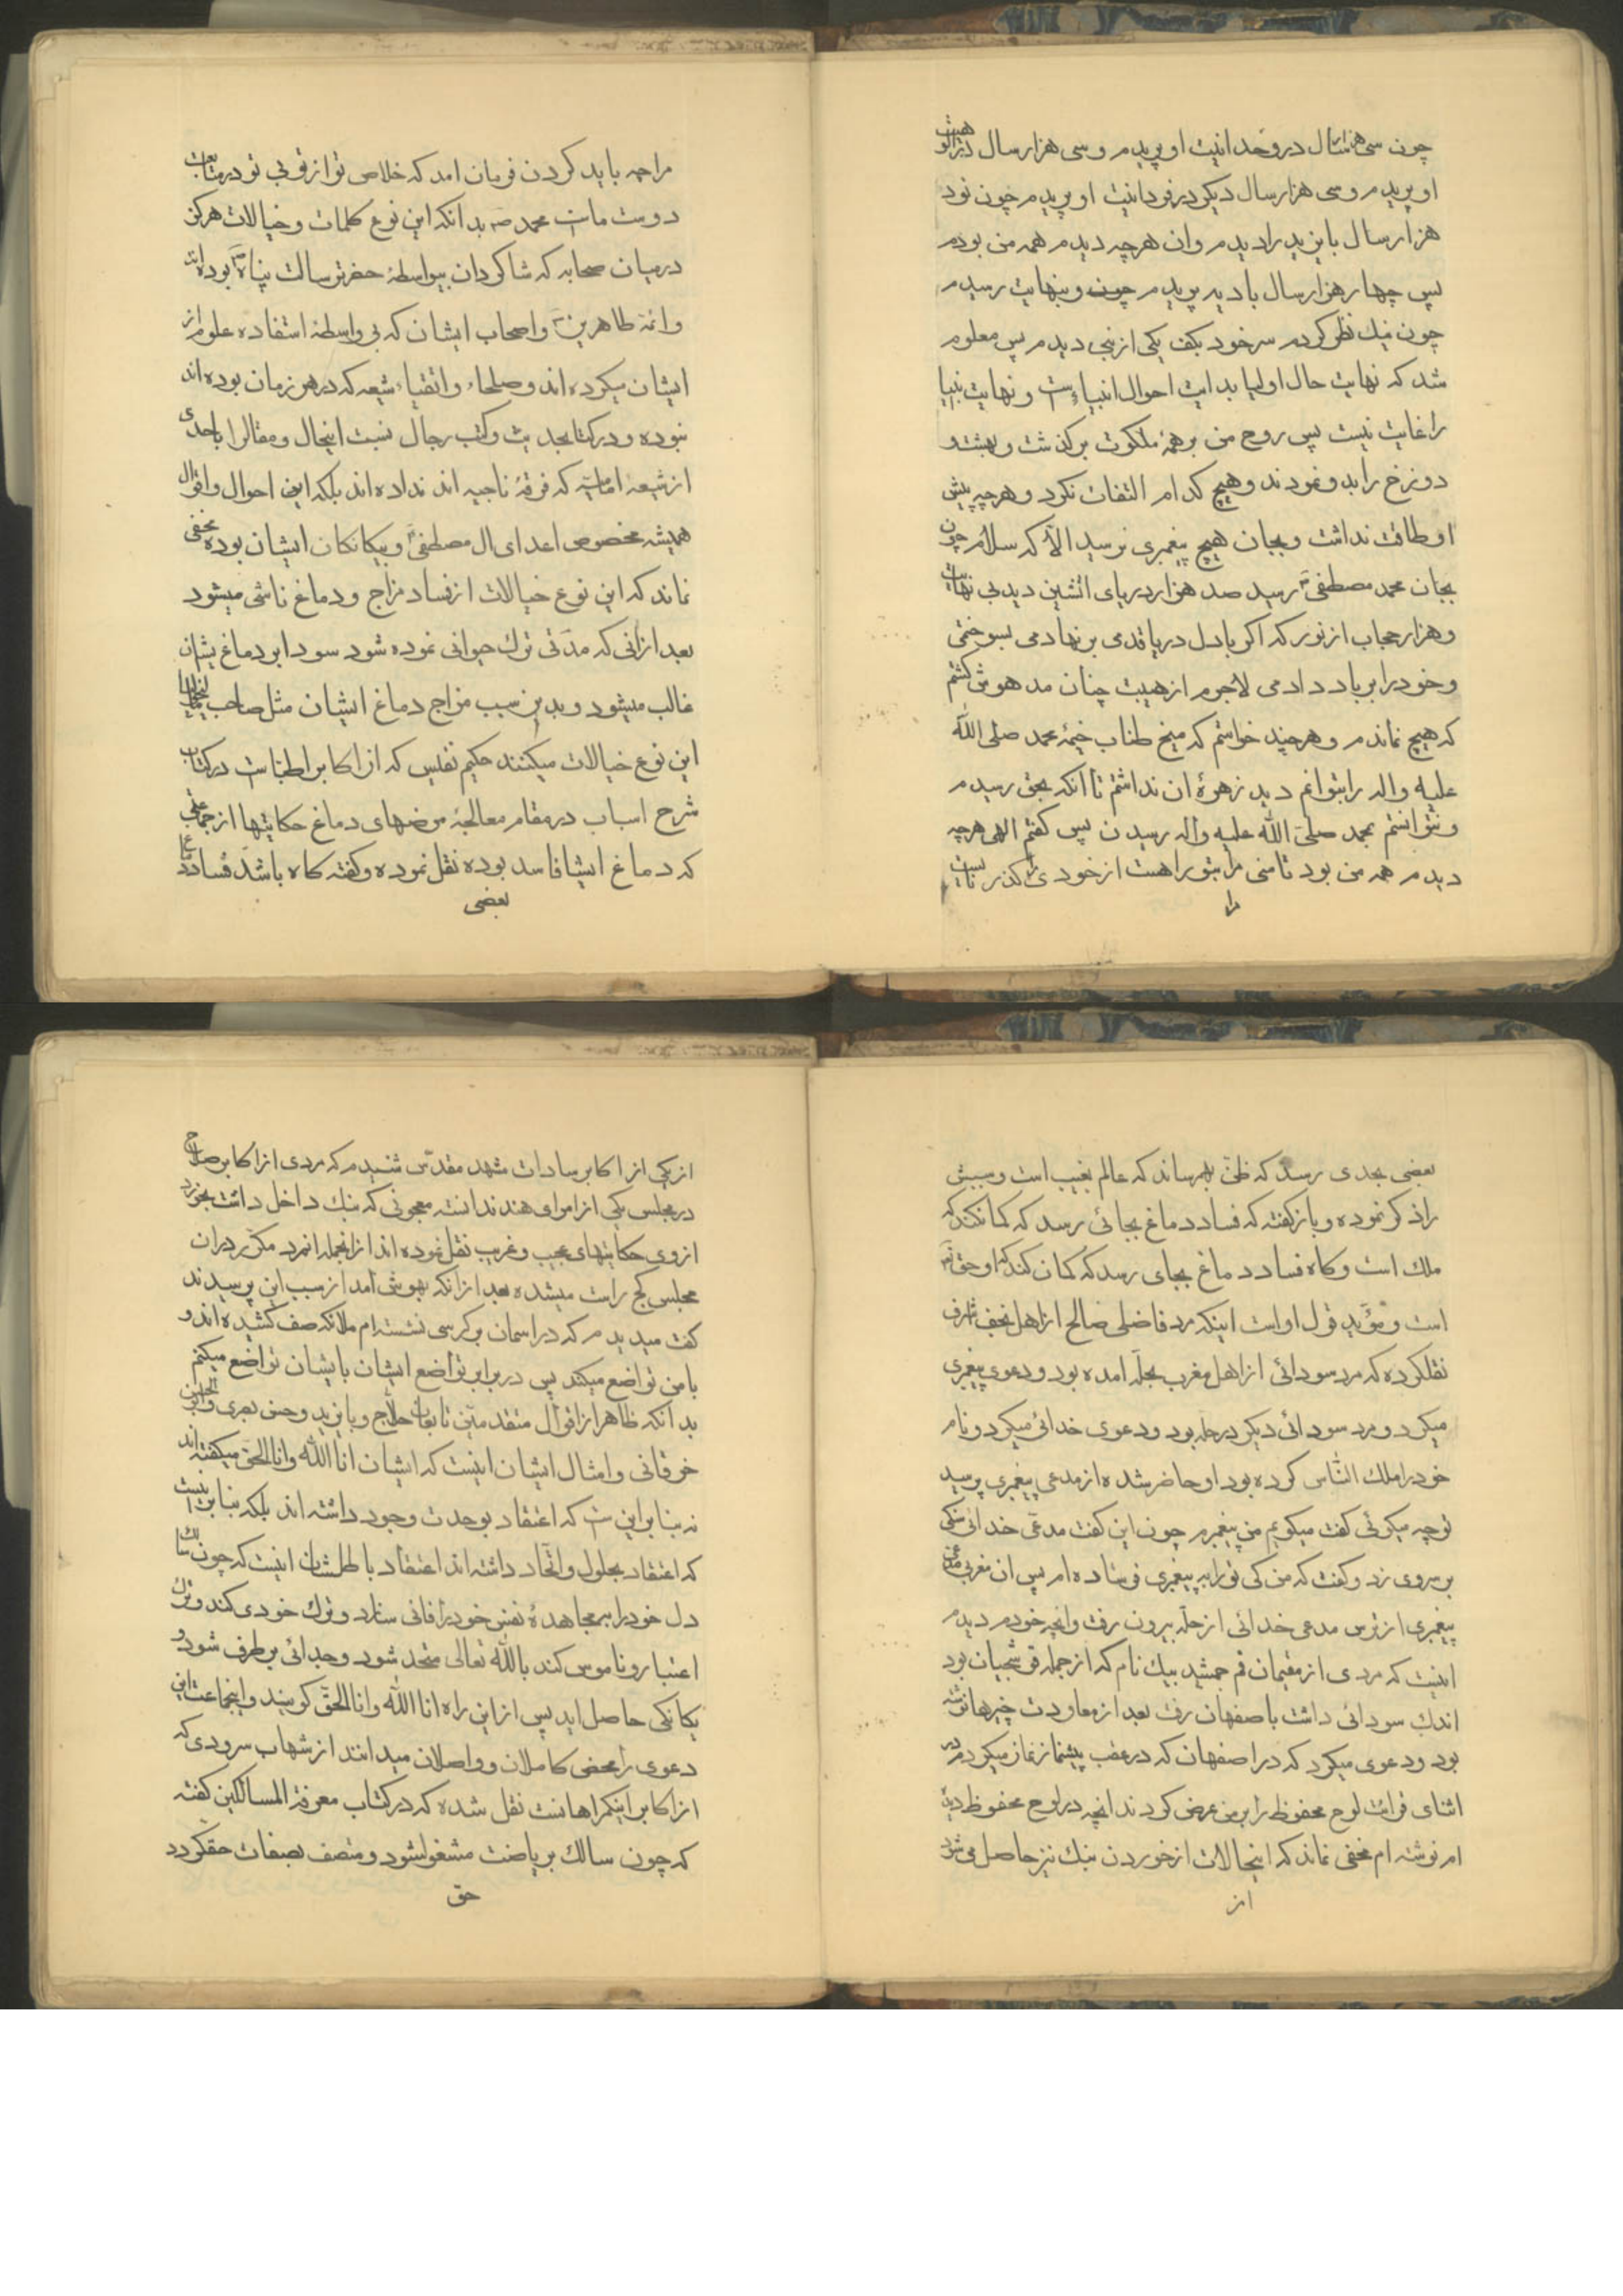 چون سی هزار سال در وحدانیت او پریدم و سی هزار سال در الوهیت
او پریدم و سی هزار سال دیکر در فردانیت او پریدم چون نود
هزار سال بایزید را دیدم وان هرچه دیدم همه من بودم
پس چهار هزار سال بادیه بریدم چون و بنهایت رسیدم
چون نیك نظر کردم سر خود بکف یکی از نبی دیدم پس معلوم
شد که نهایت حال اولیا بدایت احوال انبیاء است و نهایت انبیا
را غایت نیست پس روح من بر همهٔ ملکوت بر کذشت و بهشت و
دوزخ را بدو نمودند و هیچ کدام التفات نکرد و هرچه پیش
او طاقت نداشت و بجان هیچ پیغمبری نرسید الّا که سلام چون
بجان محمد مصطفی رسید صد هزار دریای اتشین دید بی نهایت
و هزار حجاب از نور که اکر باول دریا قدمی بر نهادمی بسوختمی
و خود را بر باد دادمی لاجرم از هیبت چنان مدهوش کشتم
که هیچ نماندم و هر چند خواستم که میخ طناب خیمهٔ محمد صلی الله
علیه واله را بتوانم دید زهرهٔ ان نداشتم تا انکه بحق رسیدم
و نتوانستم بمحمد صلی الله علیه واله رسیدن پس کفتم الهی هرچه
دیدم همه من بود تا منی مرا بتو راه نیست از خودی را کذر نیست
مرا
مرا چه باید کردن فرمان امد که خلاص تو از توی تو در متابعت
دوست ماست محمد ص بدانکه این نوع کلمات و خیالات هرکز
در میان صحابه که شاکردان بیواسطهٔ حضرت رسالت پناه بوده اند
و ائمهٔ طاهرین و اصحاب ایشان که بی واسطه استفاده علوم از
ایشان میکرده اند و صلحاء و اتقیاء شیعه که در هر زمان بوده اند
نبوده و در کتابحدیث و کتب رجال نسبت اینحال و مقال را باحدی
از شیعهٔ امامیه که فرقهٔ ناجیه اند نداده اند بلکه این احوال و اقوال
همیشه مخصوص اعدای ال مصطفی و بیکانکان ایشان بوده مخفی
نماند که این نوع خیالات از فساد مزاج و دماغ ناشی میشود
بعد ازانی که مدتی ترك حیوانی نموده شود سودا بر دماغ یشان
غالب میشود و بدین سبب مزاج دماغ ایشان مثل صاحب مالیخولیا
این نوع خیالات میکنند حکیم نفیس که از اکابر اطباست در کتاب
شرح اسباب در مقام معالجهٔ مرضهای دماغ حکایتها از جماعتی
که دماغ ایشا فاسد بوده نقل نموده و کفته کاه باشد فساد دماغ
بعضی
بعضی بحدی رسد که ظن بهمرساند که عالم بغیب است و سببش
را ذکر نموده و باز کفته که فساد دماغ بجائی رسد که کمانکند که
ملك است و کاه فساد دماغ بجای رسد که کمان کند که او حق تع
است و مؤید قول او است اینکه مرد فاضلی صالح از اهل نجف اشرف
نقلکرده که مرد سودائی از اهل مغرب بحله امده بود و دعوی پیغمبری
میکرد و مرد سودائی دیکر در حله بود و دعوی خدائی میکرد و نام
خود را ملك الناس کرده بود او حاضر شده از مدعی پیغمبری پرسید
تو چه میکوئی کفت میکویم من پیغمبرم چون این کفت مدعی خدائی سنکی
بر سر وی زد و کفت که من کی ترا به پیغمبری فرستاده ام پس ان مغربی مدعی
پیغمبری از ترس مدعی خدائی از حله بیرون رفت وانچه خودم دیدم
اینست که مردی از مقیمان قم جمشید بیك نام که از جمله قورچیان بود
اندك سودائی داشت باصفهان رفت بعد از معاودت چیزها نوشته
بود و دعوی میکرد که در اصفهان که در عقب پیشنماز نماز میکردم در
اثنای قرائت لوح محفوظ را بر من عرض کردند انچه در لوح محفوظ دیده
ام نوشته ام مخفی نماند که اینحالات از خوردن بنك نیز حاصل می شود
از
از یکی از اکابر سادات مشهد مقدس شنیدم که مردی از اکابر صلاح
در مجلس یکی از امرای هند ندانسته معجونی که بنك داخل داشت بخورد
از وی حکایتهای عجیب و غریب نقل نموده اند از انجمله انمرد مکرر در ان
مجلس کج راست میشده بعد از انکه بهوش امد از سبب این پرسیدند
کفت میدیدم که در اسمان بر کرسی نشسته ام ملائکه صف کشیده اند و
با من تواضع میکنند پس در برابر تواضع ایشان بایشان تواضع میکنم
بدانکه ظاهر از اقوال متقدمین تابعان حلاج و بایزید و حسن بصری و ابو الحسن
خرقانی و امثال ایشان اینست که ایشان انا الله و انا الحق میکفته اند
نه بنابر این ست که اعتقاد بوحدت وجود داشته اند بلکه بنابر اینست
که اعتقاد بحلول و اتحاد داشته اند اعتقاد باطلشان اینست که چون سالك
دل خود را بمجاهدهٔ نفس خود را فانی سازد و ترك خودی کند و ترك
اعتبار و ناموس کند بالله تعالی متحد شود و جدائی بر طرف شود و
یکانکی حاصل اید پس از این راه انا الله و انا الحق کویند و اینجماعت این
دعوی را محض کاملان و واصلان میدانند از شهاب سرودی که
از اکابر اینکمراهانست نقل شده که در کتاب معرفة المسالکین کفته
که چون سالك بریاضت مشغولشود و متصف بصفات حقکردد
حق